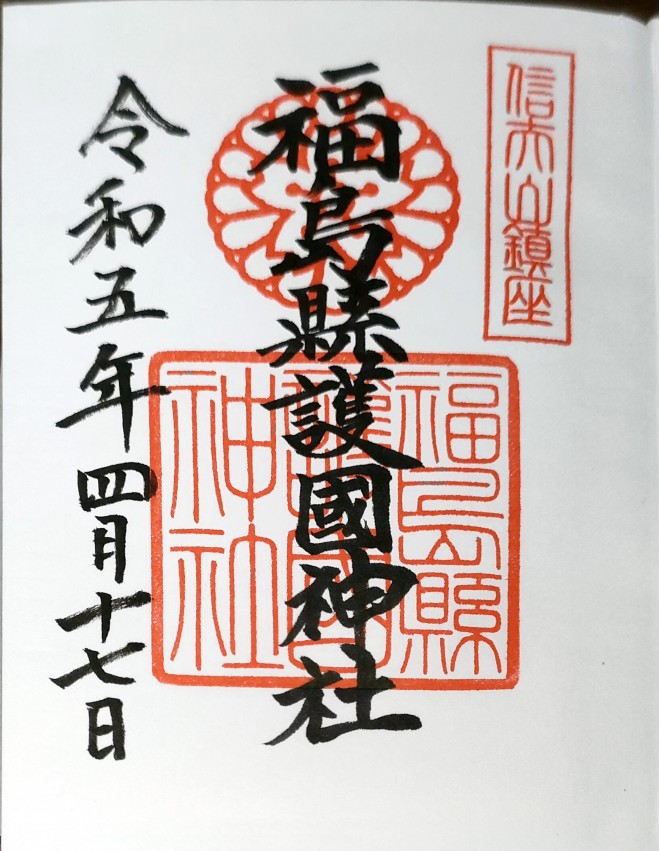 信夫山鎮座
福島縣護國神社
福島縣護國神社
令和五年四月十七日